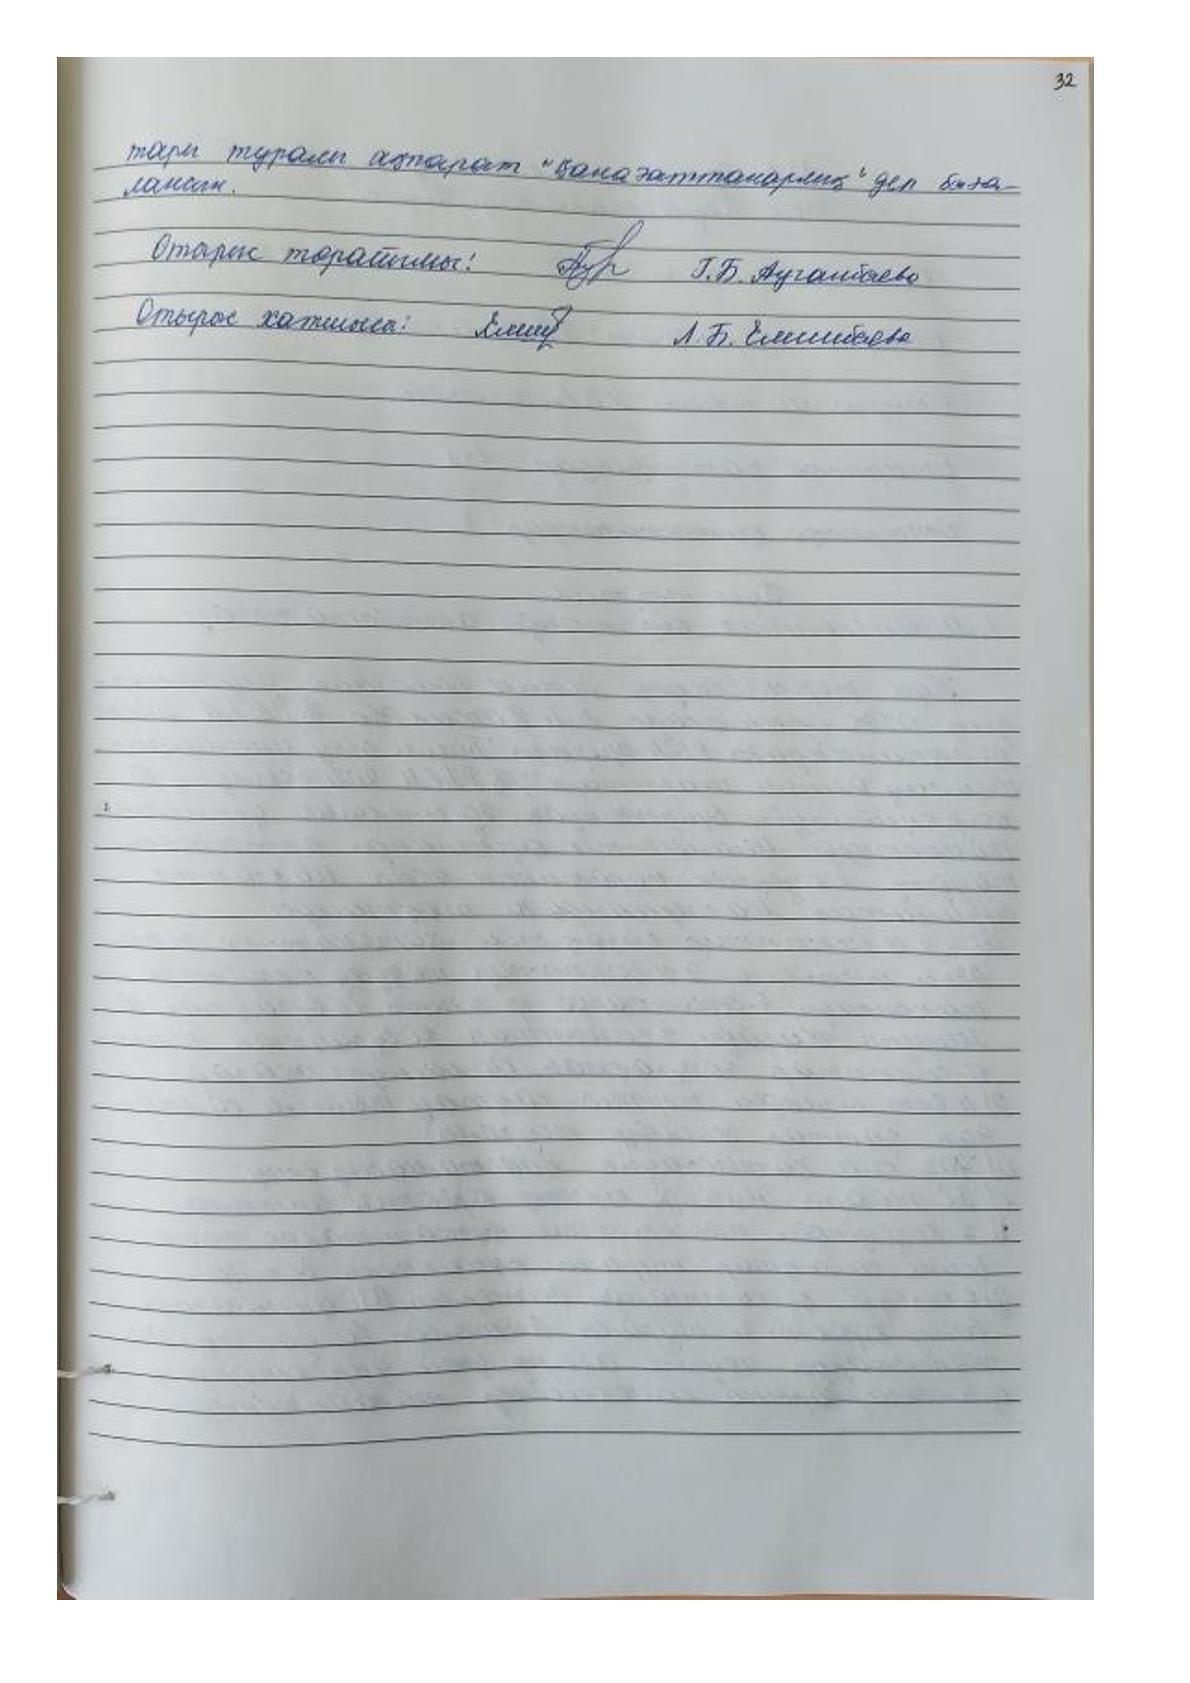 32
тары туралы ақпарат "Қанағаттанарлық" деп баға-
лансын.
Отырыс төрайымы: Г.Б. Ауганбаева
Отырыс хатшысы: Л.Б. Ешимбаева